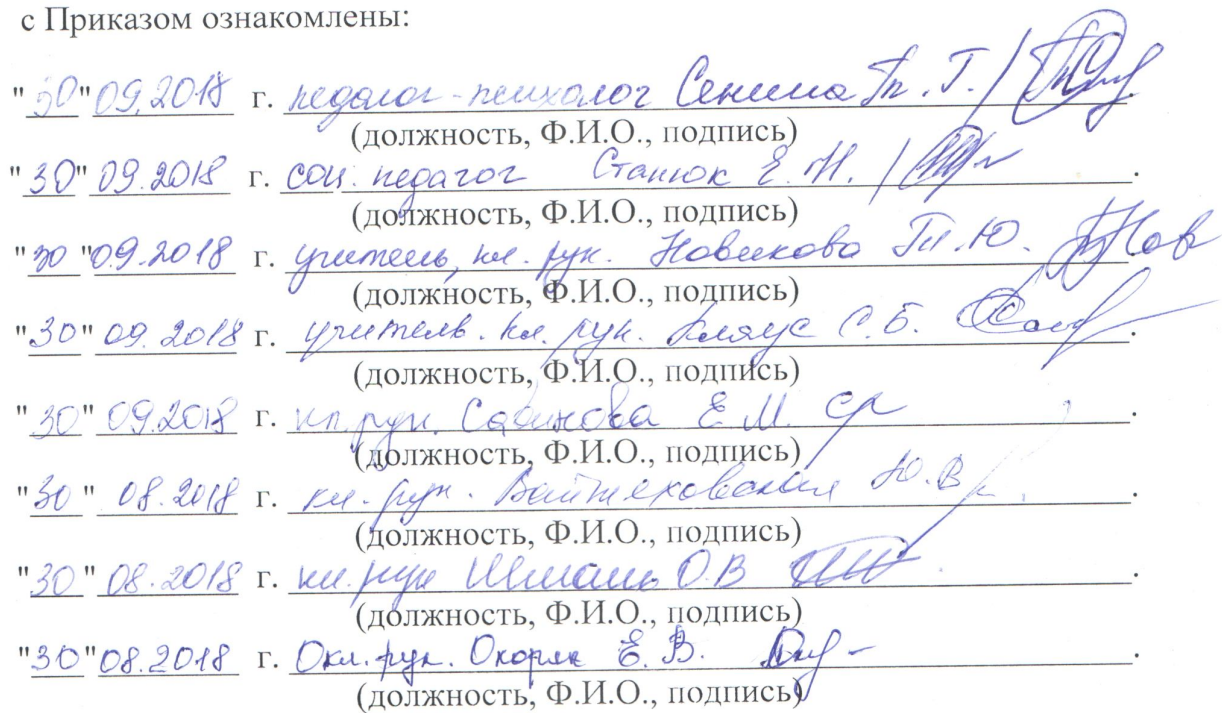 с Приказом ознакомлены:
"30" 09.2018 г. педагог-психолог Сенина Т. Г. /
(должность, Ф.И.О., подпись)
"30" 09.2018 г. соц. педагог Станюк Е. Н. /
(должность, Ф.И.О., подпись)
"30" 09.2018 г. учитель, кл. рук. Новикова Т. Ю.
(должность, Ф.И.О., подпись)
"30" 09.2018 г. учитель. кл. рук. Кляус С. Б.
(должность, Ф.И.О., подпись)
"30" 09.2018 г. кл. рук. Е. М.
(должность, Ф.И.О., подпись)
"30" 08.2018 г. кл. рук. Ю. В
(должность, Ф.И.О., подпись)
"30" 08.2018 г. кл. рук О. В
(должность, Ф.И.О., подпись)
"30" 08.2018 г. кл. рук. Е. В.
(должность, Ф.И.О., подпись)